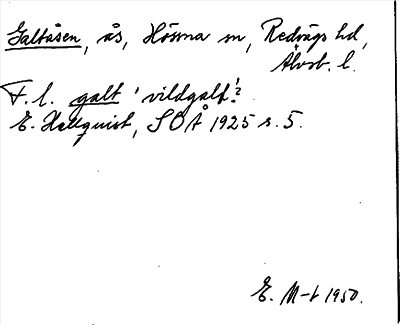 Galtåsen, ås, Hössna sn, Redvägs hd,
Älvsb. l.
F. l. galt 'vildgalt'?
E. Hellquist, SOÅ 1925 s. 5.
E. M-t 1950.